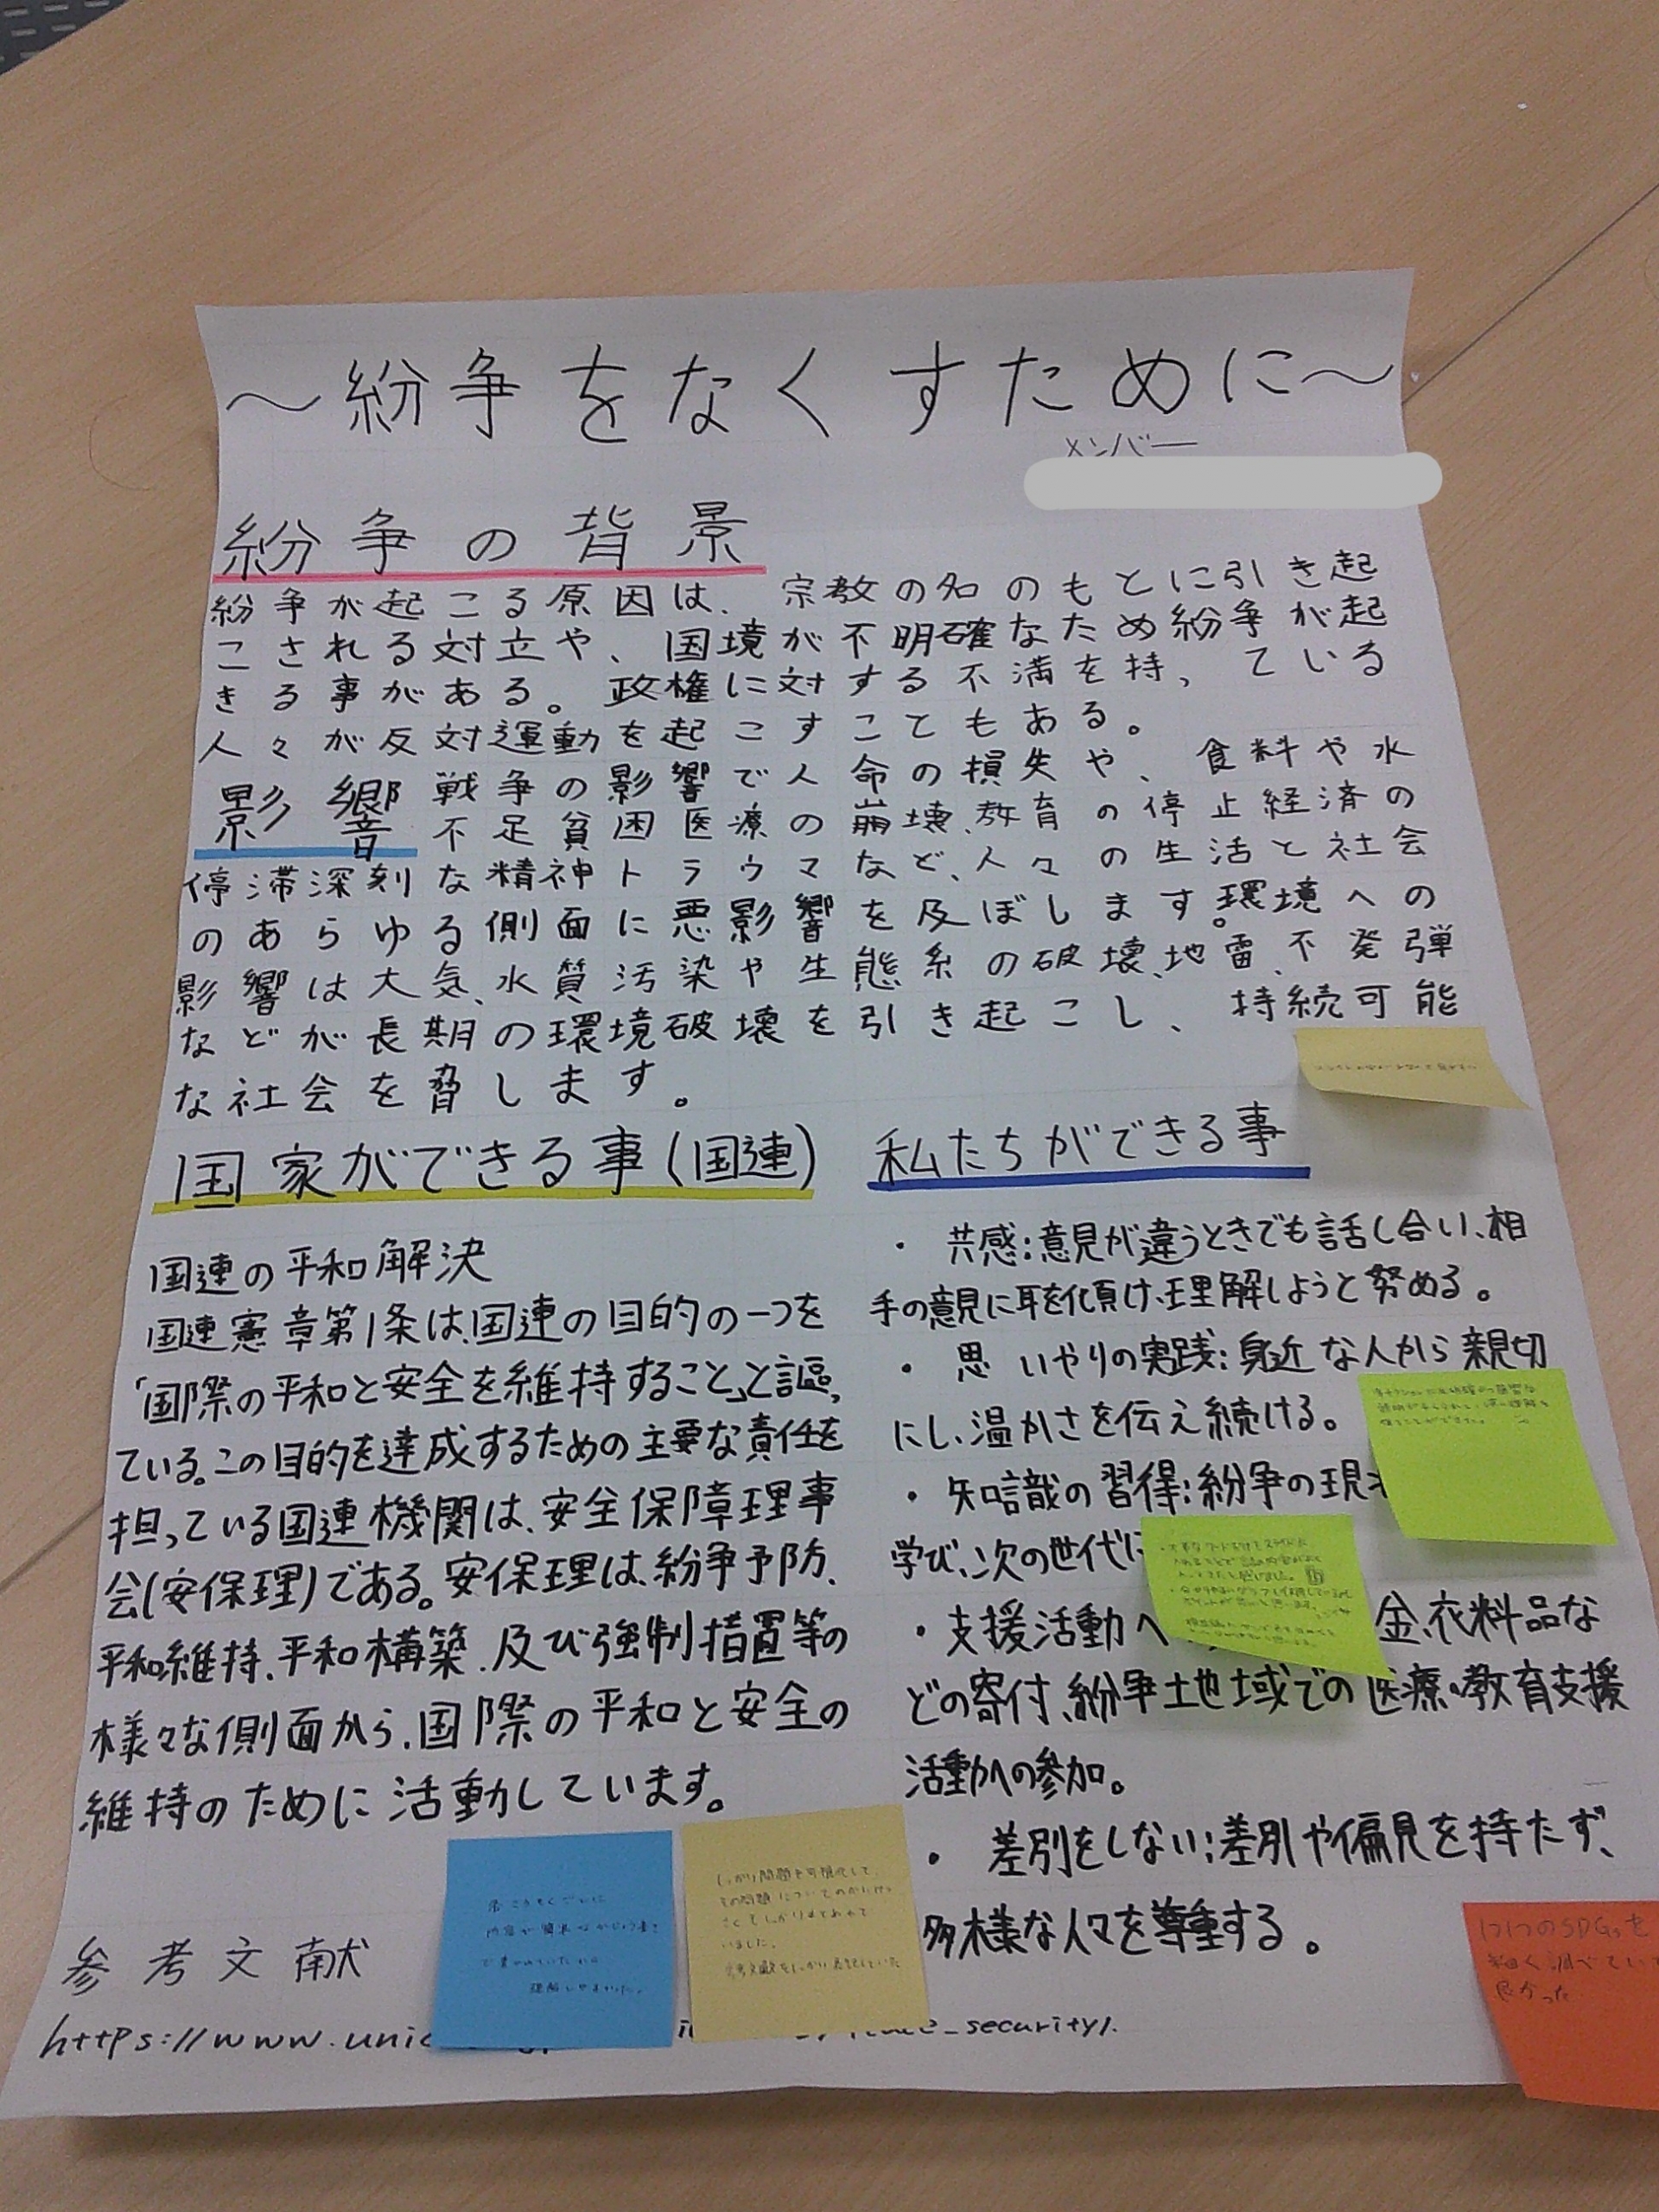 ～紛争をなくすために～
メンバー
紛争の背景
紛争が起こる原因は、宗教の名のもとに引き起
こされる対立や、国境が不明確なため紛争が起
きる事がある。政権に対する不満を持っている
人々が反対運動を起こすこともある。
影響
戦争の影響で人命の損失や、食料や水
不足貧困医療の崩壊、教育の停止経済の
停滞深刻な精神トラウマなど、人々の生活と社会
のあらゆる側面に悪影響を及ぼします。環境への
影響は大気、水質汚染や生態系の破壊、地雷、不発弾
などが長期の環境破壊を引き起こし、持続可能
な社会を脅します。
国家ができる事(国連)
国連の平和解決
国連憲章第1条は、国連の目的の一つを
「国際の平和と安全を維持すること」と謳っ
ている。この目的を達成するための主要な責任を
担っている国連機関は、安全保障理事
会(安保理)である。安保理は、紛争予防、
平和維持、平和構築、及び強制措置等の
様々な側面から、国際の平和と安全の
維持のために活動しています。
私たちができる事
・共感:意見が違うときでも話し合い、相
手の意見に耳を傾け、理解しようと努める。
・思いやりの実践:身近な人から親切
にし、温かさを伝え続ける。
・知識の習得:紛争の現
学び、次の世代に
・支援活動へ
金、衣料品な
どの寄付、紛争土地域での医療、教育支援
活動への参加。
・差別をしない:差別や偏見を持たず、
多様な人々を尊重する。
参考文献
https://www.unic
_security/.
しっかり問題を可視化して、
その問題について
いました。
理解しやすかった。
1つ1つのSDGsを
細かく調べてい
良かった